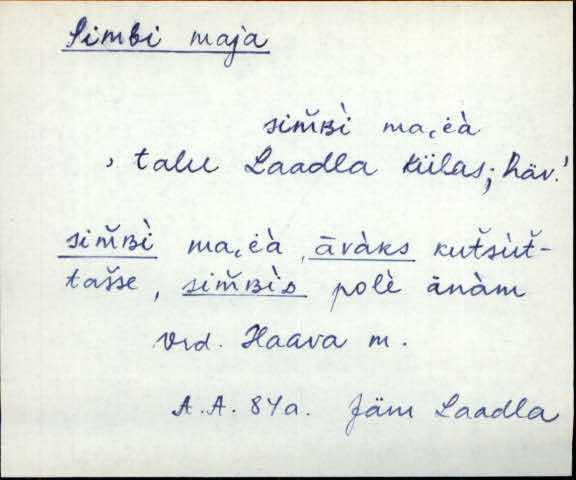 Simbi maja
sim̆ʙì ma,ėà
, talu Laadla külas; häv.!
sim̆ʙì ma,ėà, āvàks kut̆sùt̆-
tas̆se, sim̆ʙìs polè änàm
Vrd. Haava m.
A.A. 84a. Jäm Laadla